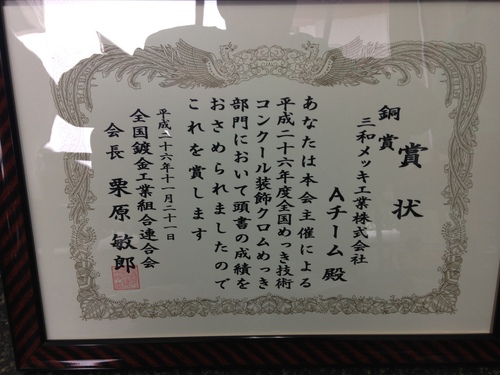 賞状
銅賞
三和メッキ工業株式会社
Aチーム殿
あなたは本会主催による
平成二十六年度全国めっき技術
コンクール装飾クロムめっき
部門において頭書の成績を
おさめられましたので
これを賞します
平成二十六年十一月二十一日
全国鍍金工業組合連合会
会長 栗原敏郎